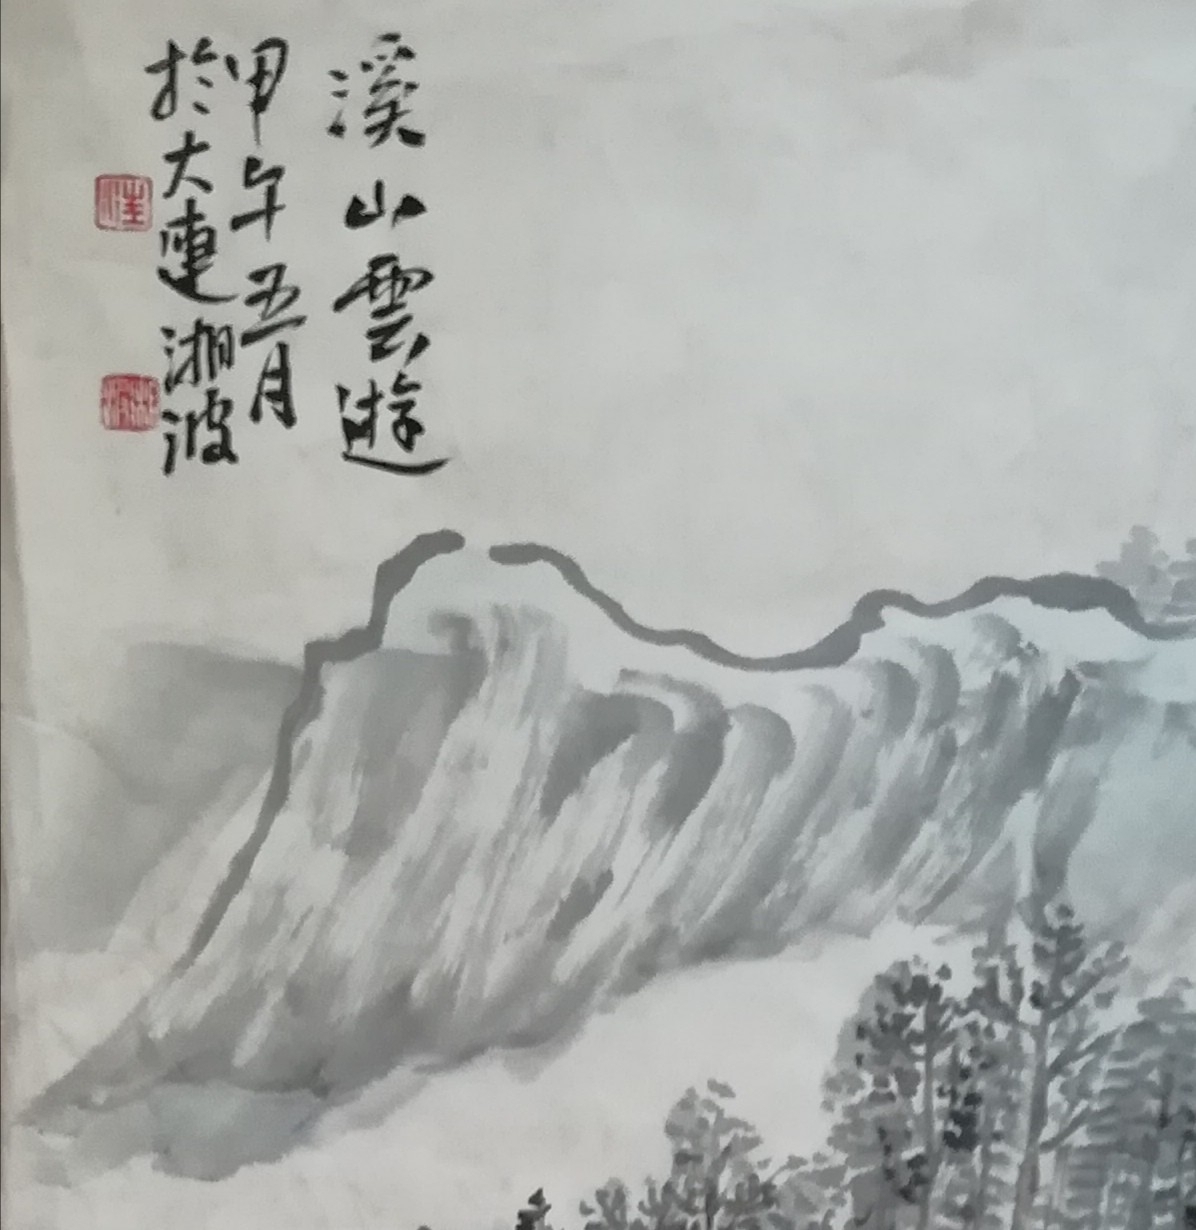 溪山雲遊
甲午五月
於大連湘波